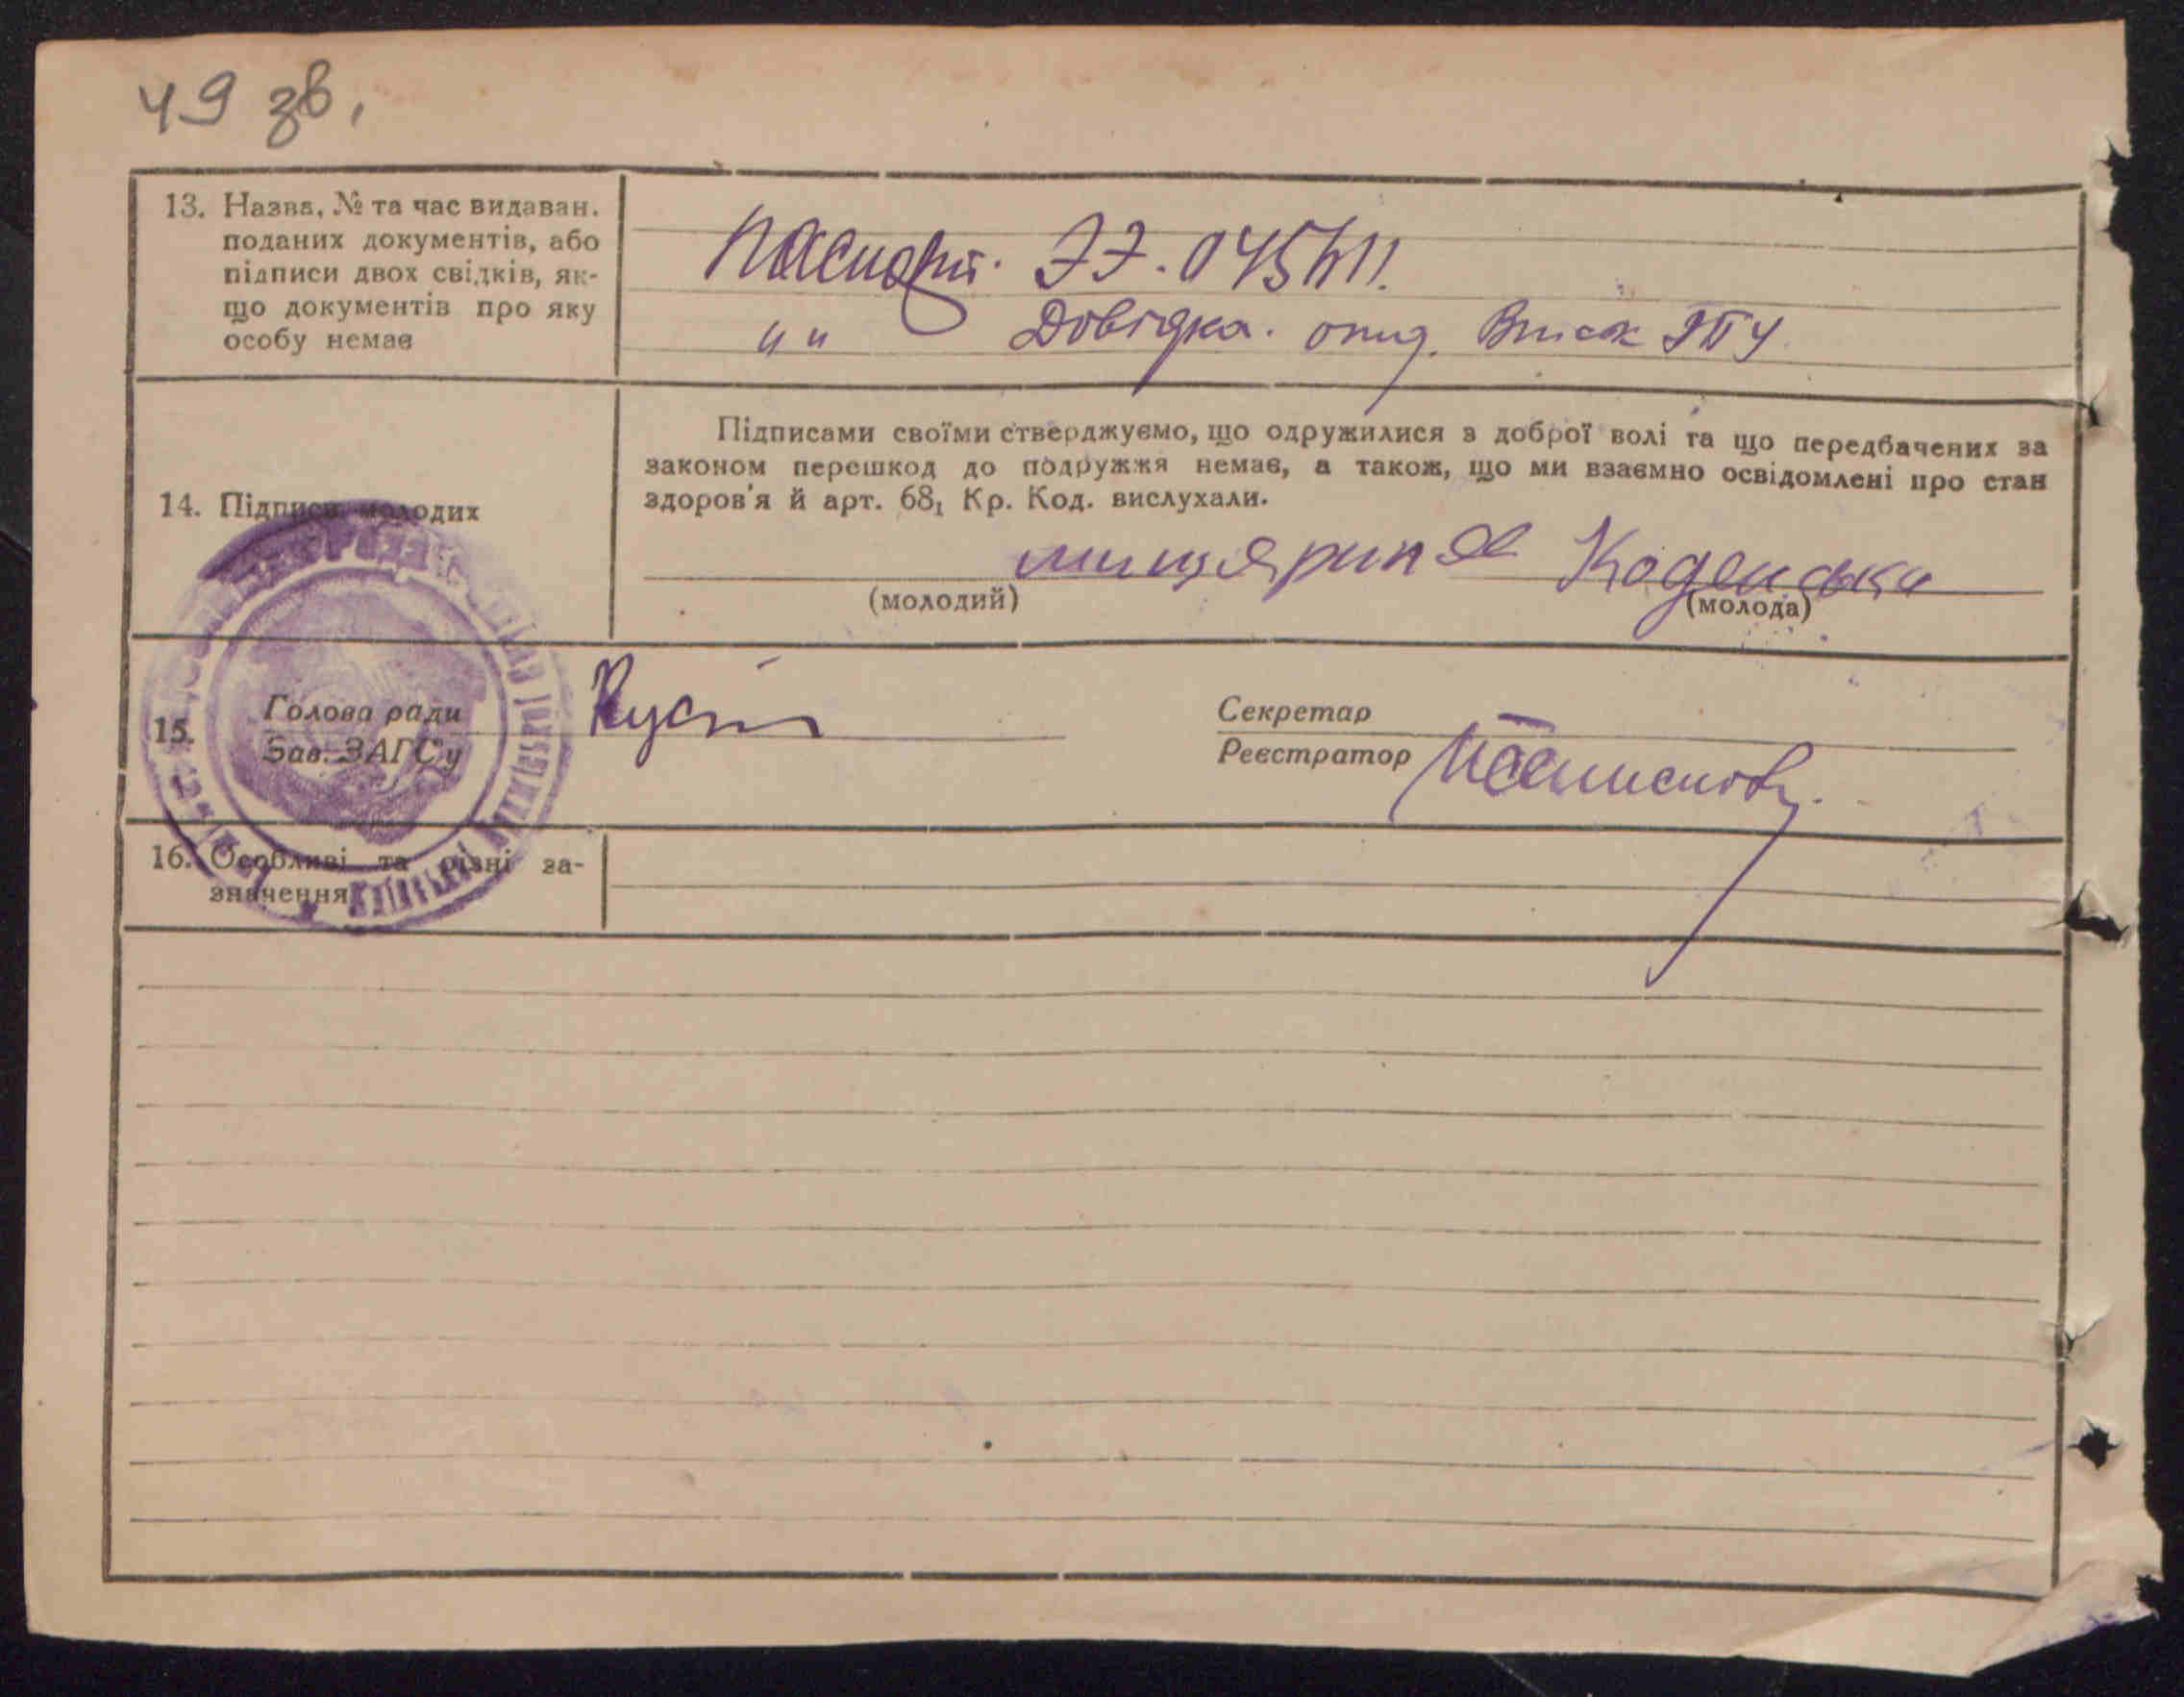 49 зв.
13. Назва, № та час видаван.
поданих документів, або
підписи двох свідків, як-
що документів про яку
особу немає
Паспорт.
" " Довідка. ГПУ
Підписами своїми стверджуємо, що одружилися з доброї волі та що передбачених за
законом перешкод до подружжя немає, а також, що ми взаємно освідомлені про стан
здоров'я й арт. 68₁ Кр. Код. вислухали.
14. Підписи молодих
(молодий)
(молода)
15. Голова ради
Зав. ЗАГСу
Секретар
Реєстратор
16. Особливі та різні за-
значення